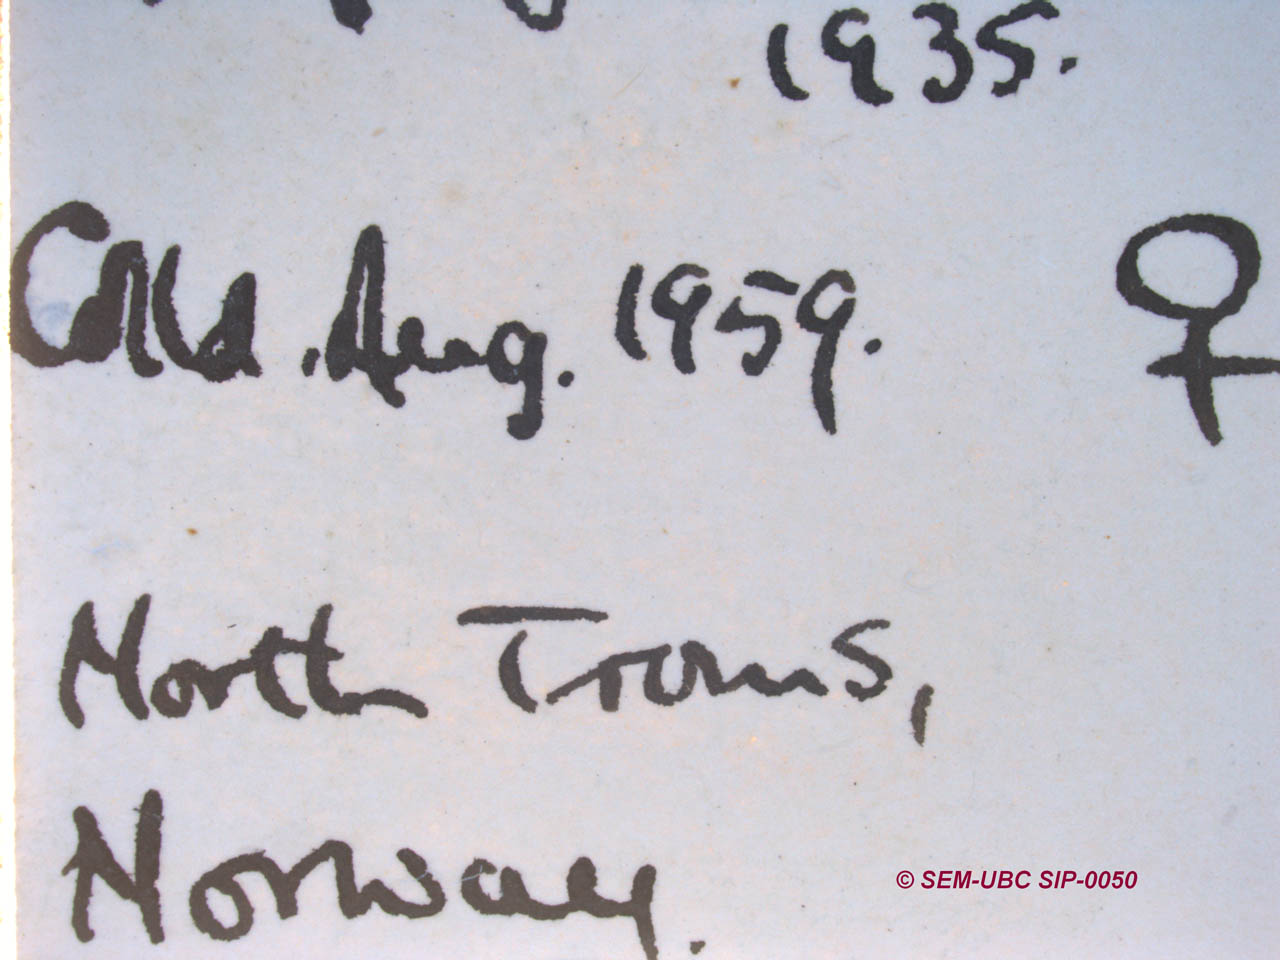 1935.
Colld. Aug. 1959. ♀
North Troms,
Norway.
© SEM-UBC SIP-0050